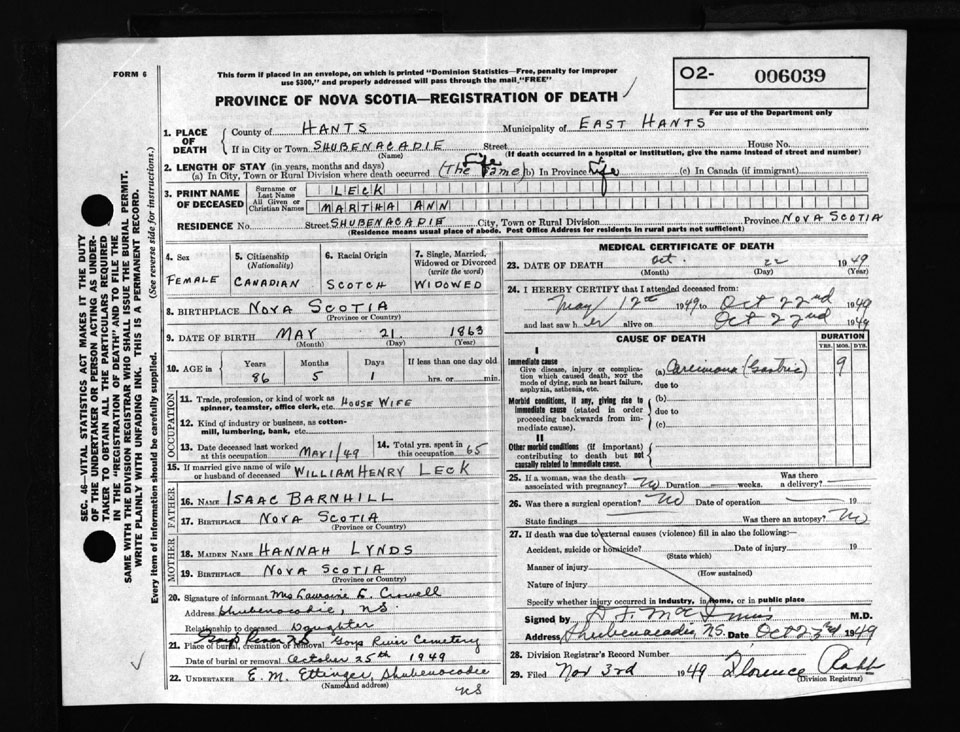 FORM 6
This form if placed in an envelope, on which is printed "Dominion Statistics—Free, penalty for improper
use $300," and properly addressed will pass through the mail, "FREE"
O2- 006039
For use of the Department only
PROVINCE OF NOVA SCOTIA—REGISTRATION OF DEATH
1. PLACE OF DEATH
County of HANTS Municipality of EAST HANTS
If in City or Town SHUBENACADIE Street House No.
(Name) (If death occurred in a hospital or institution, give the name instead of street and number)
2. LENGTH OF STAY (in years, months and days)
(a) In City, Town or Rural Division where death occurred Life (The Same) (b) In Province Life (c) In Canada (if immigrant)
3. PRINT NAME OF DECEASED
Surname or Last Name LECK
All Given or Christian Names MARTHA ANN
RESIDENCE No. Street SHUBENACADIE City, Town or Rural Division Province NOVA SCOTIA
(Residence means usual place of abode. Post Office Address for residents in rural parts not sufficient)
4. Sex FEMALE
5. Citizenship (Nationality) CANADIAN
6. Racial Origin SCOTCH
7. Single, Married, Widowed or Divorced (write the word) WIDOWED
8. BIRTHPLACE NOVA SCOTIA
(Province or Country)
9. DATE OF BIRTH MAY 21 1863
(Month) (Day) (Year)
10. AGE in Years Months Days If less than one day old
86 5 1 hrs. or min.
OCCUPATION
11. Trade, profession, or kind of work as spinner, teamster, office clerk, etc. HOUSE WIFE
12. Kind of industry or business, as cotton-mill, lumbering, bank, etc.
13. Date deceased last worked at this occupation MAY 1/49
14. Total yrs. spent in this occupation 65
15. If married give name of wife or husband of deceased WILLIAM HENRY LECK
FATHER
16. NAME ISAAC BARNHILL
17. BIRTHPLACE NOVA SCOTIA
(Province or Country)
MOTHER
18. MAIDEN NAME HANNAH LYNDS
19. BIRTHPLACE NOVA SCOTIA
(Province or Country)
20. Signature of informant Mrs Lauraine E. Crowell
Address Shubenacadie, N.S.
Relationship to deceased Daughter
21. Place of burial, cremation or removal NS Goss River Cemetery
Date of burial or removal October 25th 1949
22. UNDERTAKER E. M. Ettinger, Shubenacadie
(Name and address) NS
MEDICAL CERTIFICATE OF DEATH
23. DATE OF DEATH Oct. 22 1949
(Month) (Day) (Year)
24. I HEREBY CERTIFY that I attended deceased from:
May 12th 1949 to Oct 22nd 1949
and last saw her alive on Oct 22nd 1949
CAUSE OF DEATH DURATION
YRS. MOS. DYS.
I
Immediate cause
Give disease, injury or complication which caused death, not the mode of dying, such as heart failure, asphyxia, asthenia, etc.
(a) Carcinoma (Gastric) 9
due to
Morbid conditions, if any, giving rise to immediate cause (stated in order proceeding backwards from immediate cause).
(b)
due to
(c)
II
Other morbid conditions (if important) contributing to death but not causally related to immediate cause.
25. If a woman, was the death associated with pregnancy? No Duration weeks. Was there a delivery?
26. Was there a surgical operation? No Date of operation 19
State findings Was there an autopsy? No
27. If death was due to external causes (violence) fill in also the following:—
Accident, suicide or homicide? Date of injury 19
(State which)
Manner of injury
(How sustained)
Nature of injury
Specify whether injury occurred in industry, in home, or in public place
Signed by M.D.
Address Shubenacadie, N.S. Date Oct 22nd 1949
28. Division Registrar's Record Number
29. Filed Nov 3rd 1949 Florence Rabb
(Division Registrar)
SEC. 46—VITAL STATISTICS ACT MAKES IT THE DUTY
OF THE UNDERTAKER OR PERSON ACTING AS UNDER-
TAKER TO OBTAIN ALL THE PARTICULARS REQUIRED
IN THE "REGISTRATION OF DEATH" AND TO FILE THE
SAME WITH THE DIVISION REGISTRAR WHO SHALL ISSUE THE BURIAL PERMIT.
WRITE PLAINLY WITH UNFADING INK. THIS IS A PERMANENT RECORD.
Every item of information should be carefully supplied. (See reverse side for instructions.)